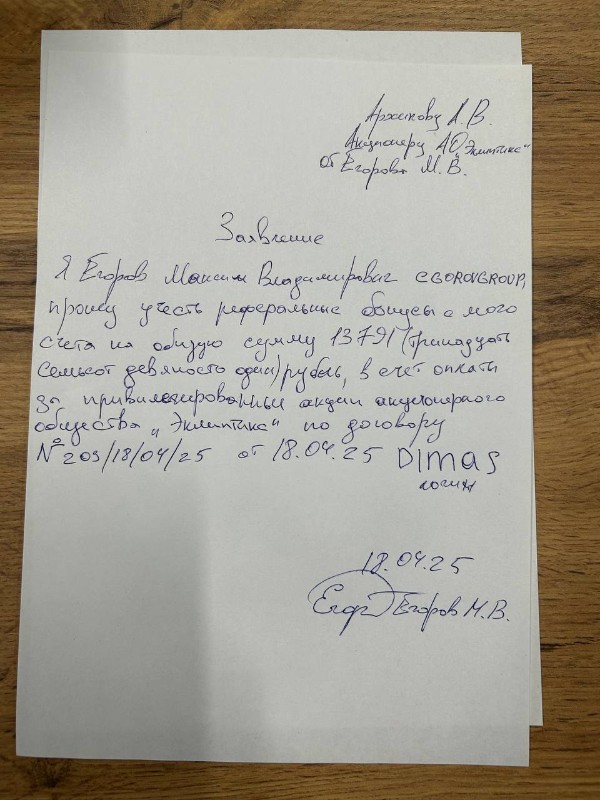 Архипову А.В.
Акционеру АО „Эклиптика“
от Егорова М.В.
Заявление
Я Егоров Максим Владимирович EGOROVGROUP,
прошу учесть реферальные бонусы с моего
счета на общую сумму 13791 (тринадцать
семьсот девяносто один) рубль, в счет оплаты
за привилегированные акции акционерного
общества „Эклиптика“ по договору
№ 209/18/04/25 от 18.04.25 DIMAS
логин
18.04.25
Егоров М.В.